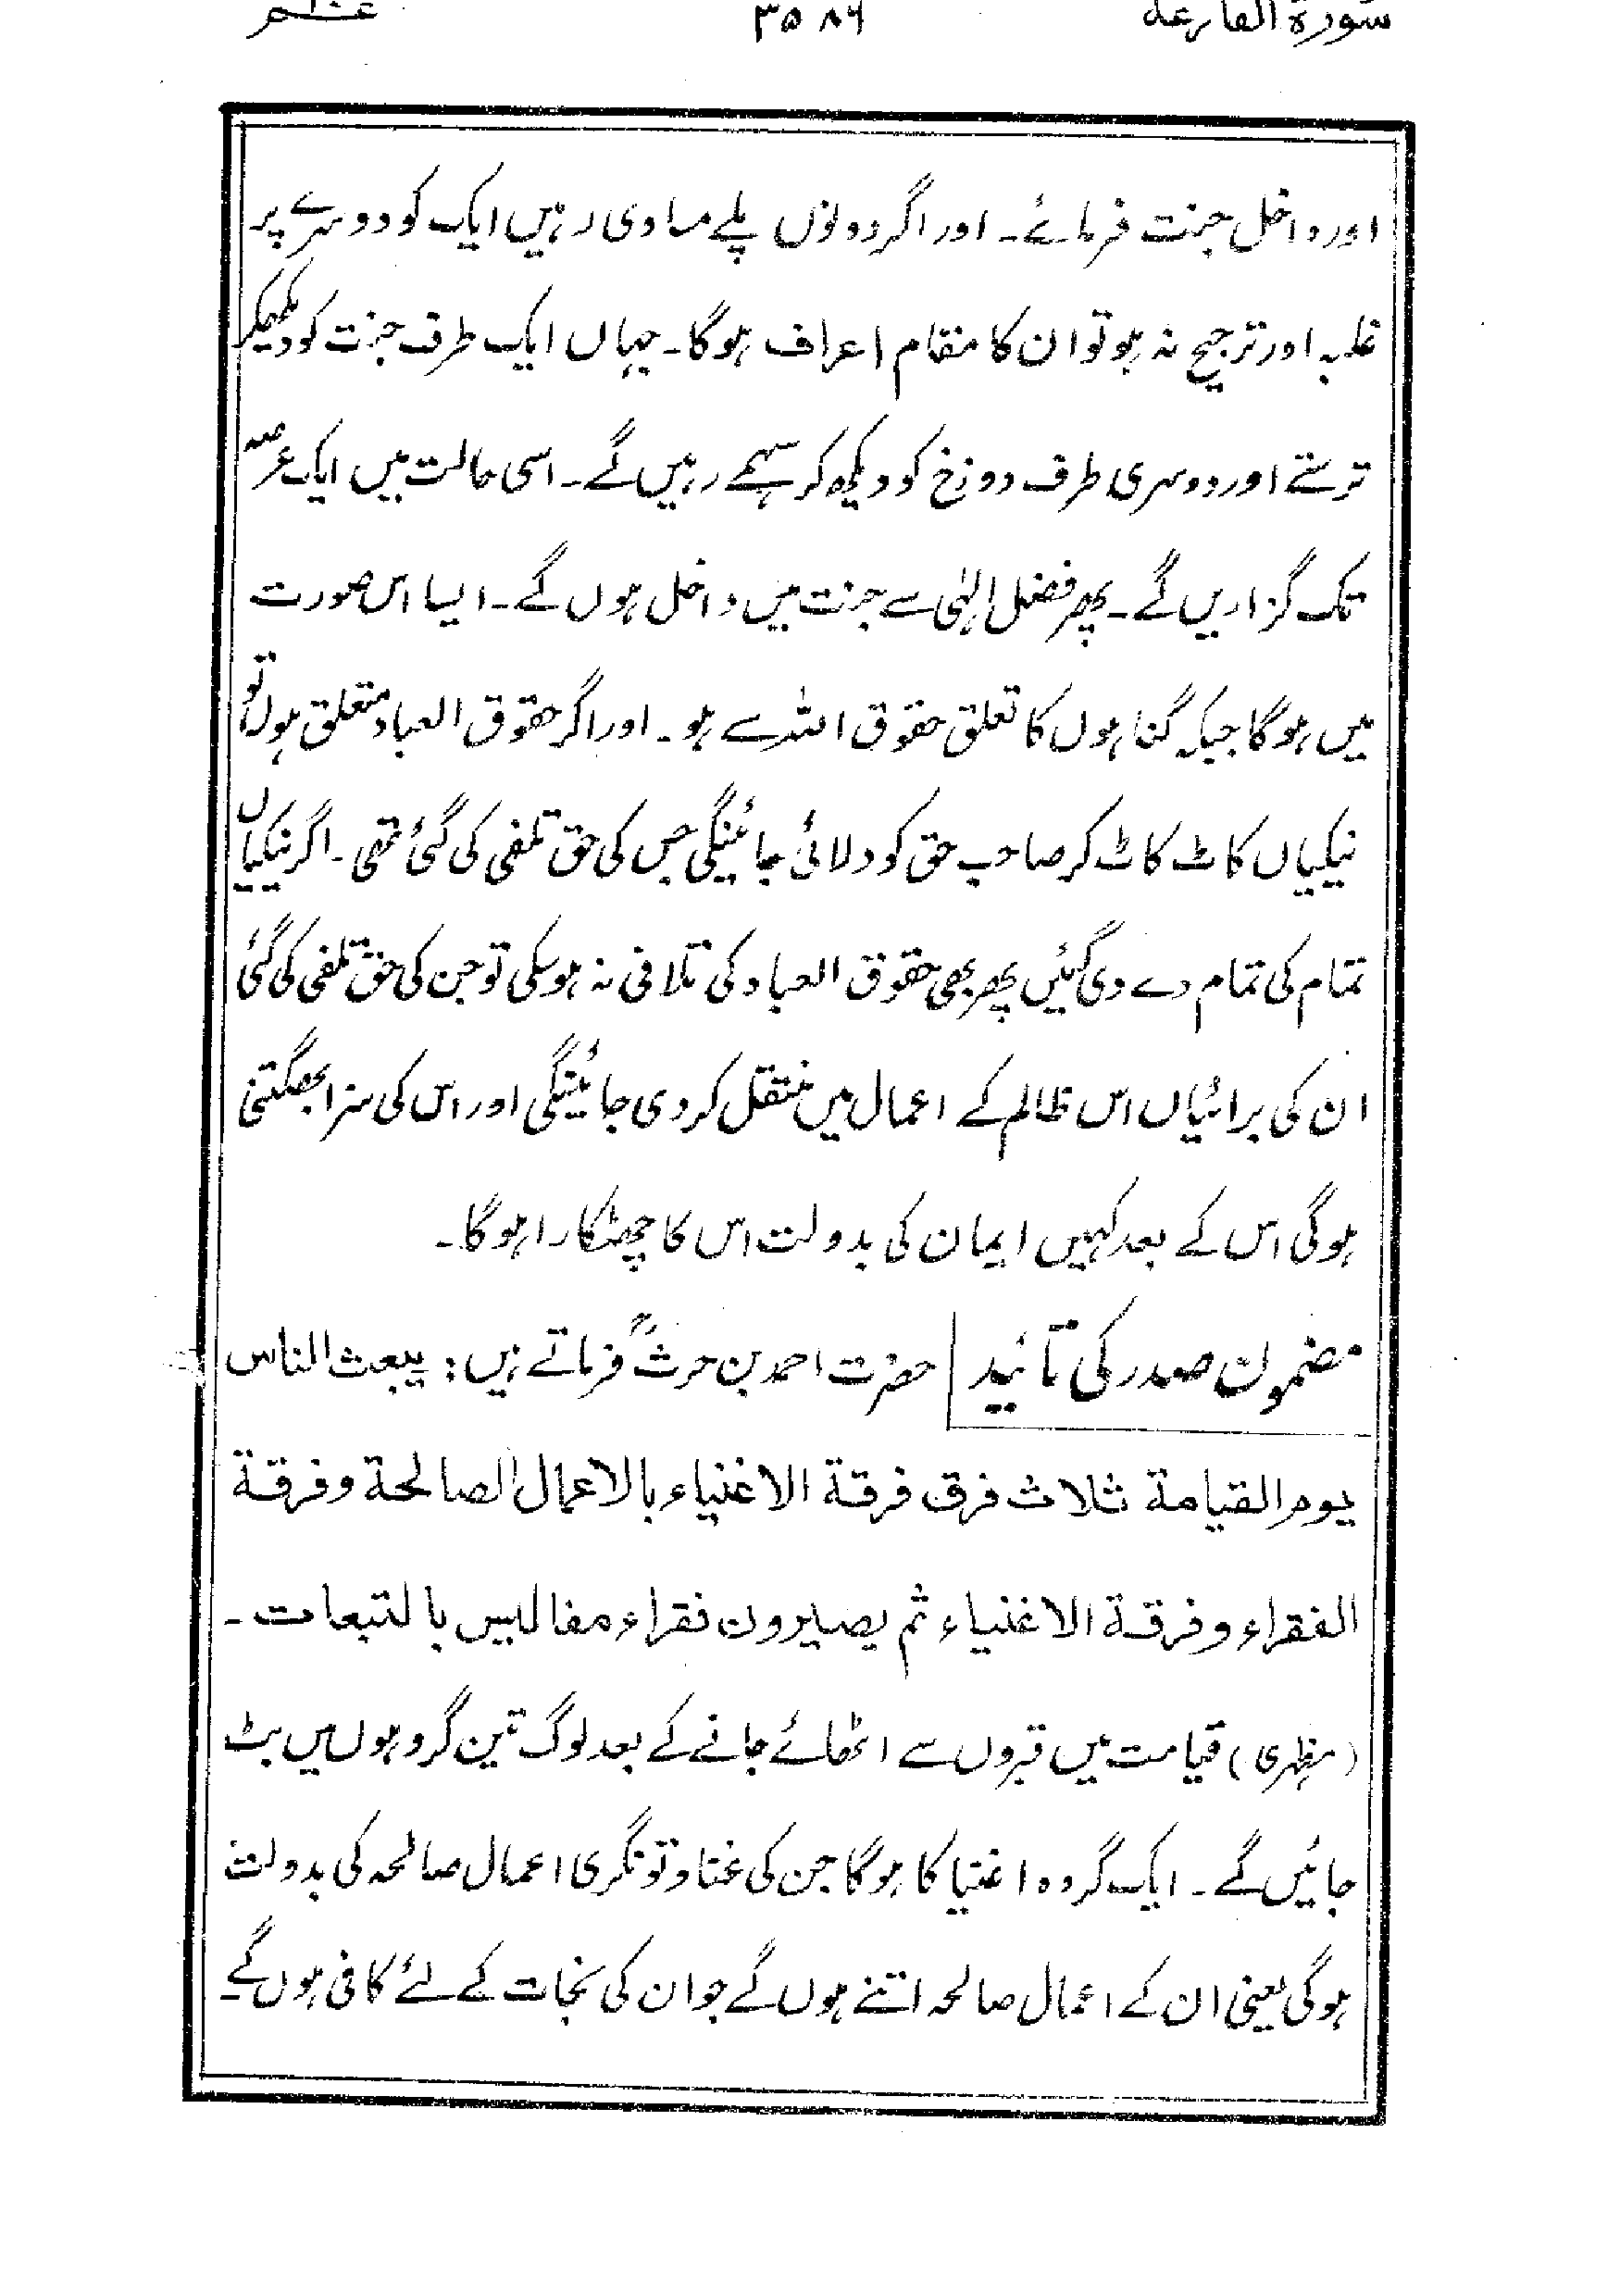 سورة القارعة ۳۵۸۶ عم
اور داخل جنت فرمائے۔ اور اگر دونوں پلے مساوی رہیں ایک کو دوسرے پر
غلبہ اور ترجیح نہ ہو تو ان کا مقام اعراف ہوگا۔ جہاں ایک طرف جنت کو دیکھکر
ترستے اور دوسری طرف دوزخ کو دیکھ کر سہمے رہیں گے۔ اسی حالت میں ایک عرصہ
تک گزاریں گے۔ پھر فضل الٰہی سے جنت میں داخل ہوں گے۔ ایسا اس صورت
میں ہوگا جبکہ گناہوں کا تعلق حقوق اللہ سے ہو۔ اور اگر حقوق العباد متعلق ہوں تو
نیکیاں کاٹ کاٹ کر صاحب حق کو دلائی جائینگی جس کی حق تلفی کی گئی تھی۔ اگر نیکیاں
تمام کی تمام دے دی گئیں پھر بھی حقوق العباد کی تلافی نہ ہوسکی تو جن کی حق تلفی کی گئی
ان کی برائیاں اس ظالم کے اعمال میں منتقل کردی جائینگی اور اس کی سزا بھگتنی
ہوگی اس کے بعد کہیں ایمان کی بدولت اس کا چھٹکارا ہوگا۔
مضمون صدر کی تائید حضرت احمد بن حرثؒ فرماتے ہیں: یبعث الناس
یوم القیامة ثلاث فرق فرقة الاغنیاء بالاعمال الصالحة وفرقة
الفقراء وفرقة الاغنیاء ثم یصیرون فقراء مفالیس بالتبعات۔
(مظہری) قیامت میں قبروں سے اٹھائے جانے کے بعد لوگ تین گروہوں میں بٹ
جائیں گے۔ ایک گروہ اغنیا کا ہوگا جن کی غنا و تونگری اعمال صالحہ کی بدولت
ہوگی یعنی ان کے اعمال صالحہ اتنے ہوں گے جو ان کی نجات کے لئے کافی ہوں گے۔